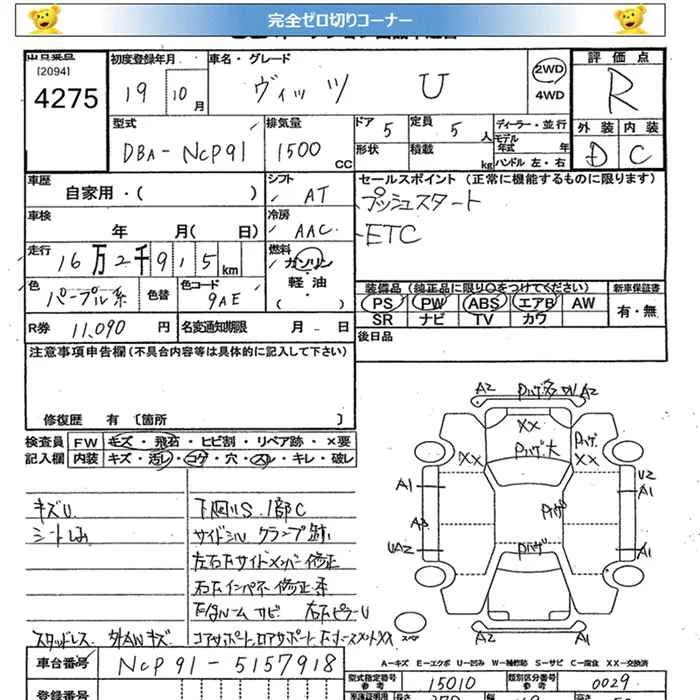 完全ゼロ切りコーナー
出品票台
[2094]
4275
初度登録年月 車名・グレード
19 10月 ヴィッツ U
2WD
4WD
評価点
R
外装 内装
D C
型式 排気量 ドア 5 定員 5人 ディーラー・並行
DBA-NCP91 1500CC 形状 積載 kg モデル年式 年
ハンドル 左・右
車歴 シフト セールスポイント (正常に機能するものに限ります)
自家用・( ) AT プッシュスタート
車検 冷房
年 月( 日) AAC ETC
走行 燃料
16万2千915km ガソリン
軽油
色 色替 色コード
パープル系 9AE
装備品 (純正品に限り○をつけてください) 新車保証書
PS PW ABS エアB AW 有・無
SR ナビ TV カワ
R券 11,090円 名変通知期限 月 日
後日品
注意事項申告欄(不具合内容等は具体的に記入して下さい)
修復歴 有 〔箇所 〕
検査員 FW キズ・飛石・ヒビ割・リペア跡・×要
記入欄 内装 キズ・汚レ・コゲ・穴・スレ・キレ・破レ
キズU 下回りS、1部C
シートしみ サイドシルクランプ跡
左右Fサイドメンバー修正
右Fインパネ修正系
スタッドレス 外AWキズ コアサポート、ロアサポート
A2 A2
XX
Pハゲ大
Pハゲ
XX XX
A1 U2
A1
A3 Pハゲ
UA2 Pハゲ A1
A2 A1
スペア
A-キズ E-エクボ U-凹み W-補修跡 S-サビ C-腐食 XX-交換済
車台番号 NCP91-5157918
型式指定番号 参考 15010 類別区分番号 参考 0029
登録番号